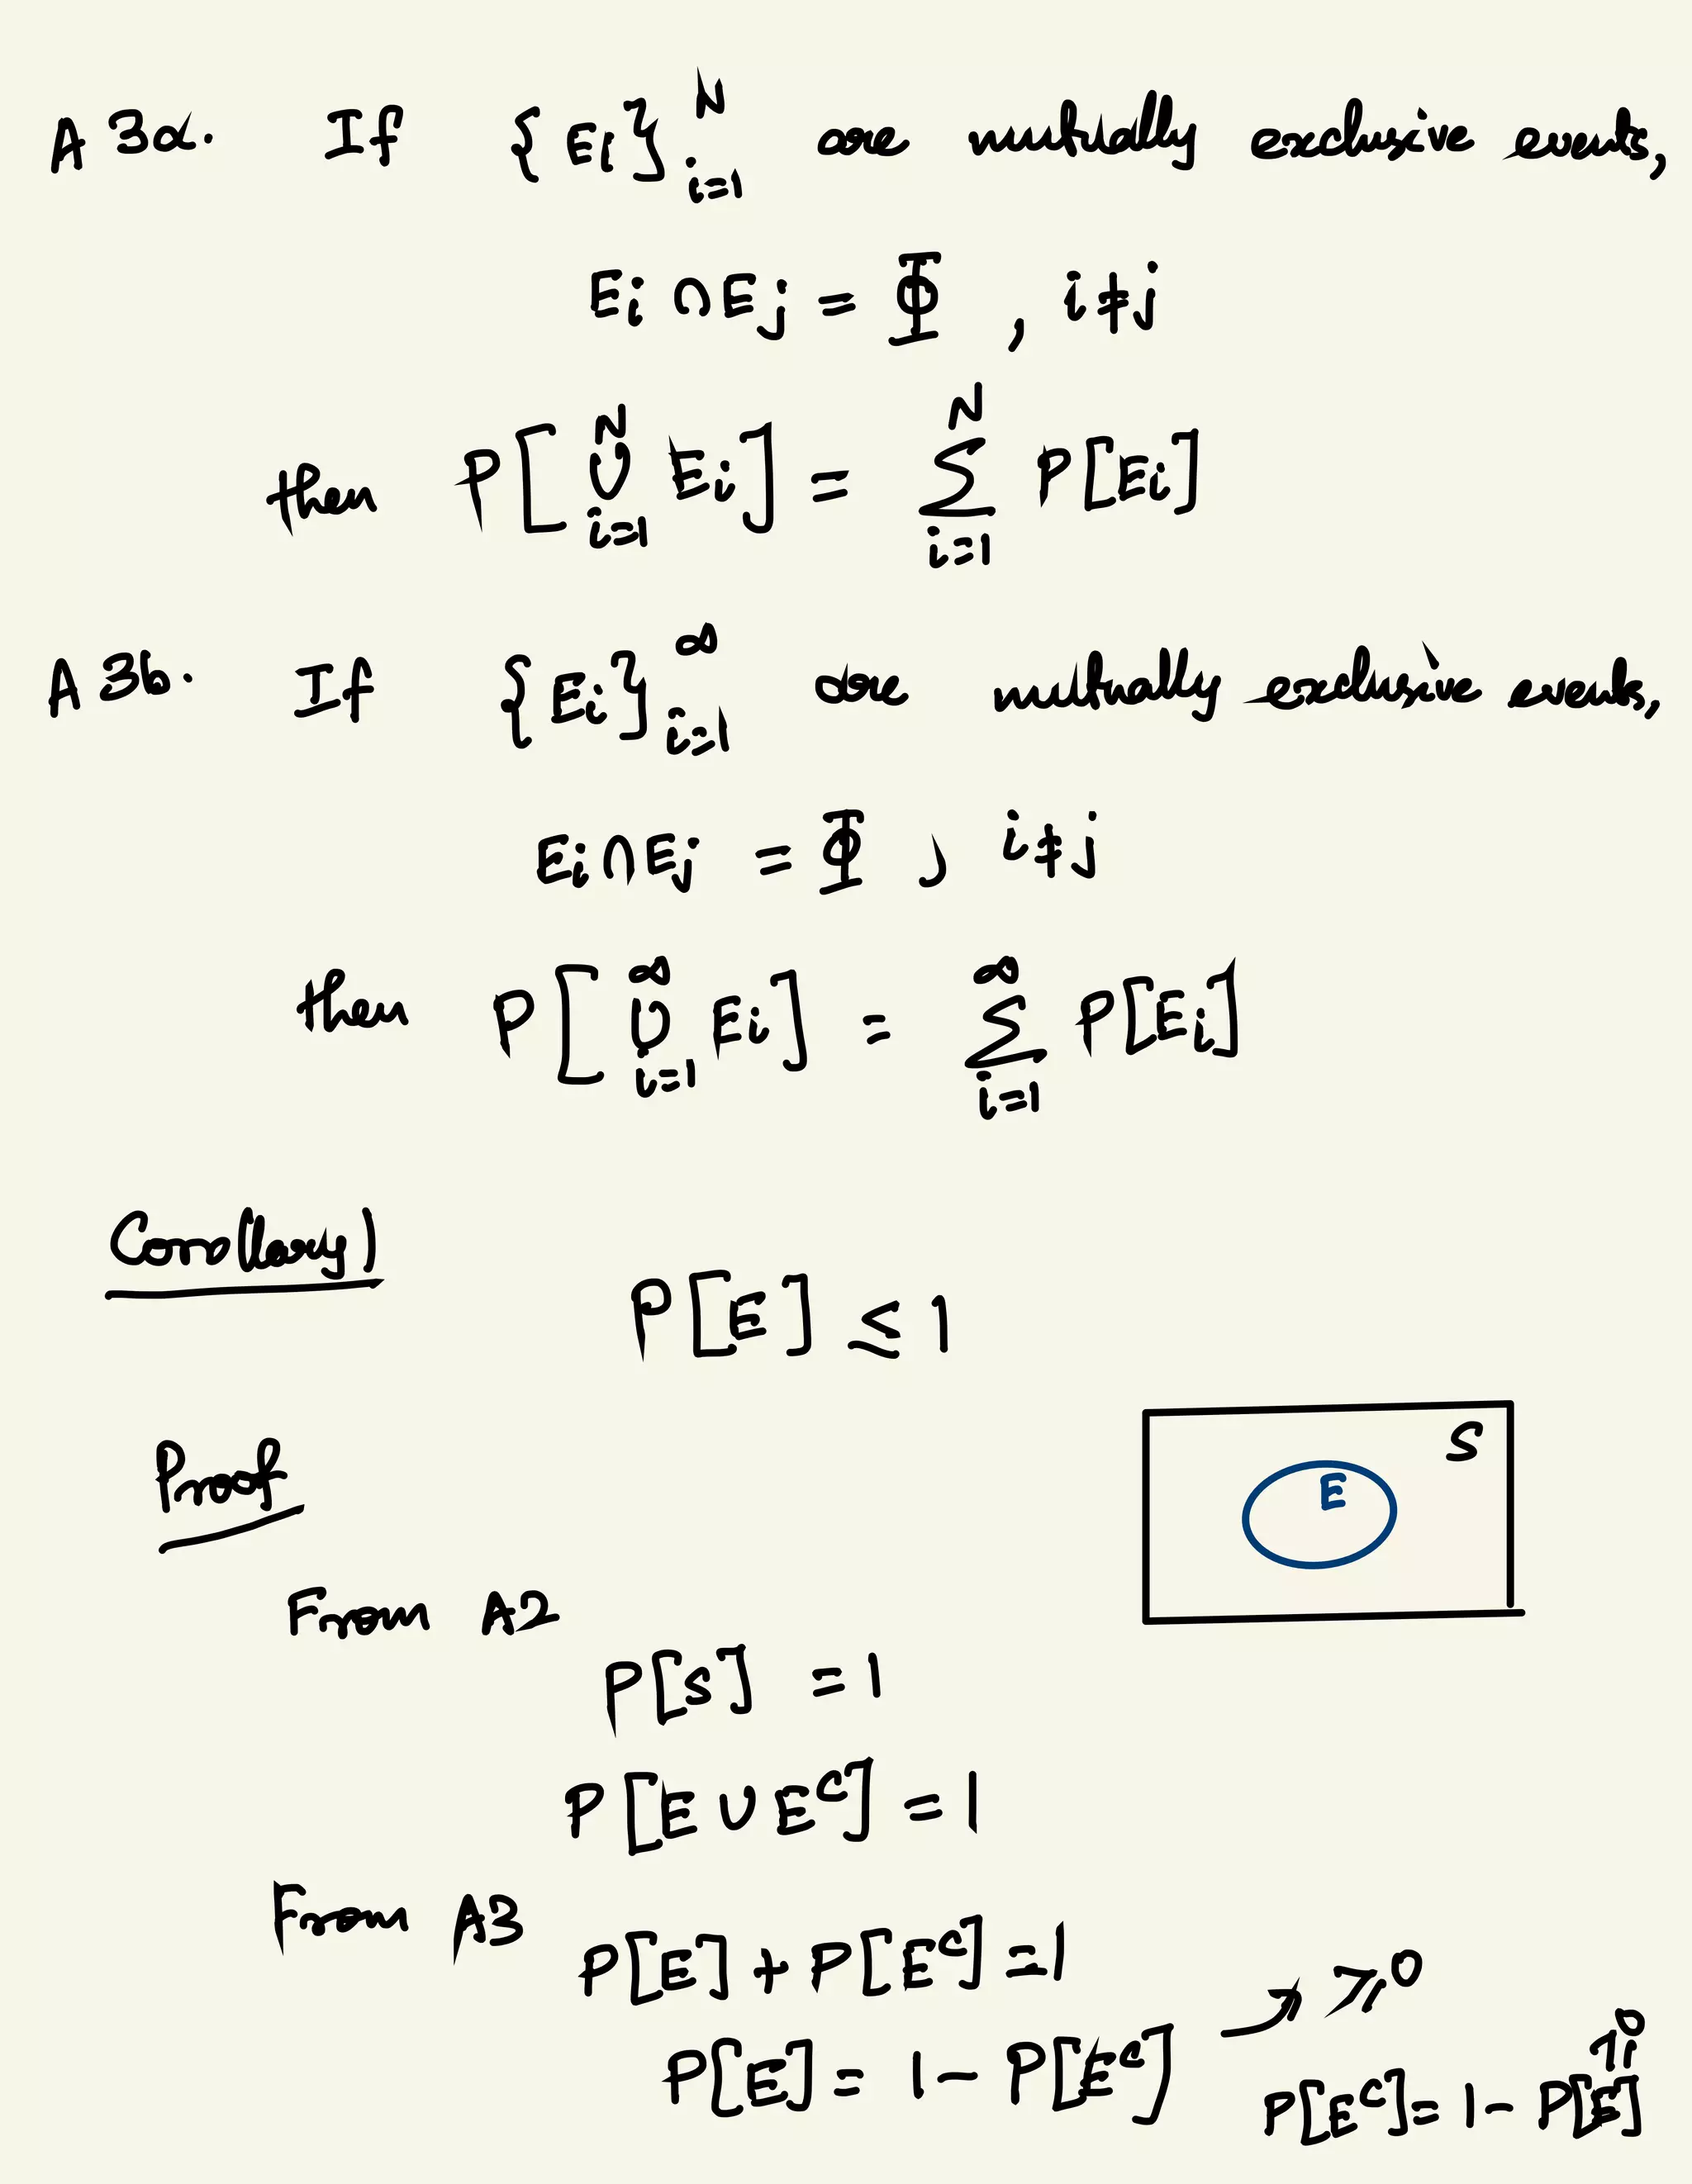 A 3a. If {Ei}_{i=1}^{N} are mutually exclusive events,
Ei ∩ Ej = Φ , i ≠ j
then P[ ⋃_{i=1}^{N} Ei ] = ∑_{i=1}^{N} P[Ei]
A 3b. If {Ei}_{i=1}^{∞} are mutually exclusive events,
Ei ∩ Ej = Φ , i ≠ j
then P[ ⋃_{i=1}^{∞} Ei ] = ∑_{i=1}^{∞} P[Ei]
Corollary 1
P[E] ≤ 1
Proof
S
E
From A2
P[S] = 1
P[E ∪ E^C] = 1
From A3
P[E] + P[E^C] = 1
P[E] = 1 - P[E^C] → ≥ 0
P[E^C] = 1 - P[E] ≥ 0